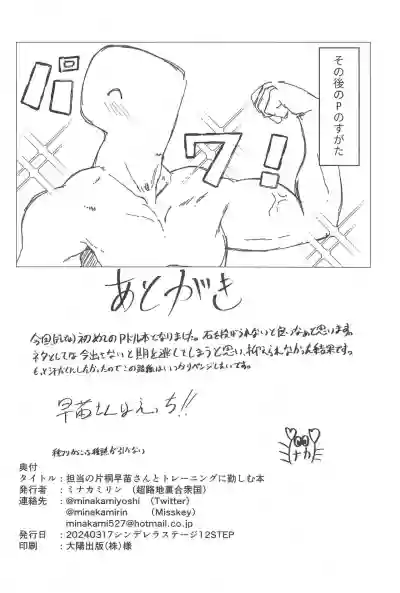 その後のPのすがた
パワー!
あとがき
今回 初めてのPドル本となりました。石を投げられないと良いなあと思います。
ネタとしては今出さないと期を逃してしまうと思い、抑えられなかった結果です。
早苗さんはえっち!!
ミナカ
奥付
タイトル：担当の片桐早苗さんとトレーニングに勤しむ本
発行者：ミナカミリン （超路地裏合衆国）
連絡先：@minakamiyoshi （Twitter）
@minakamirin （Misskey）
minakami527@hotmail.co.jp
発行日：20240317シンデレラステージ12STEP
印刷：大陽出版(株)様